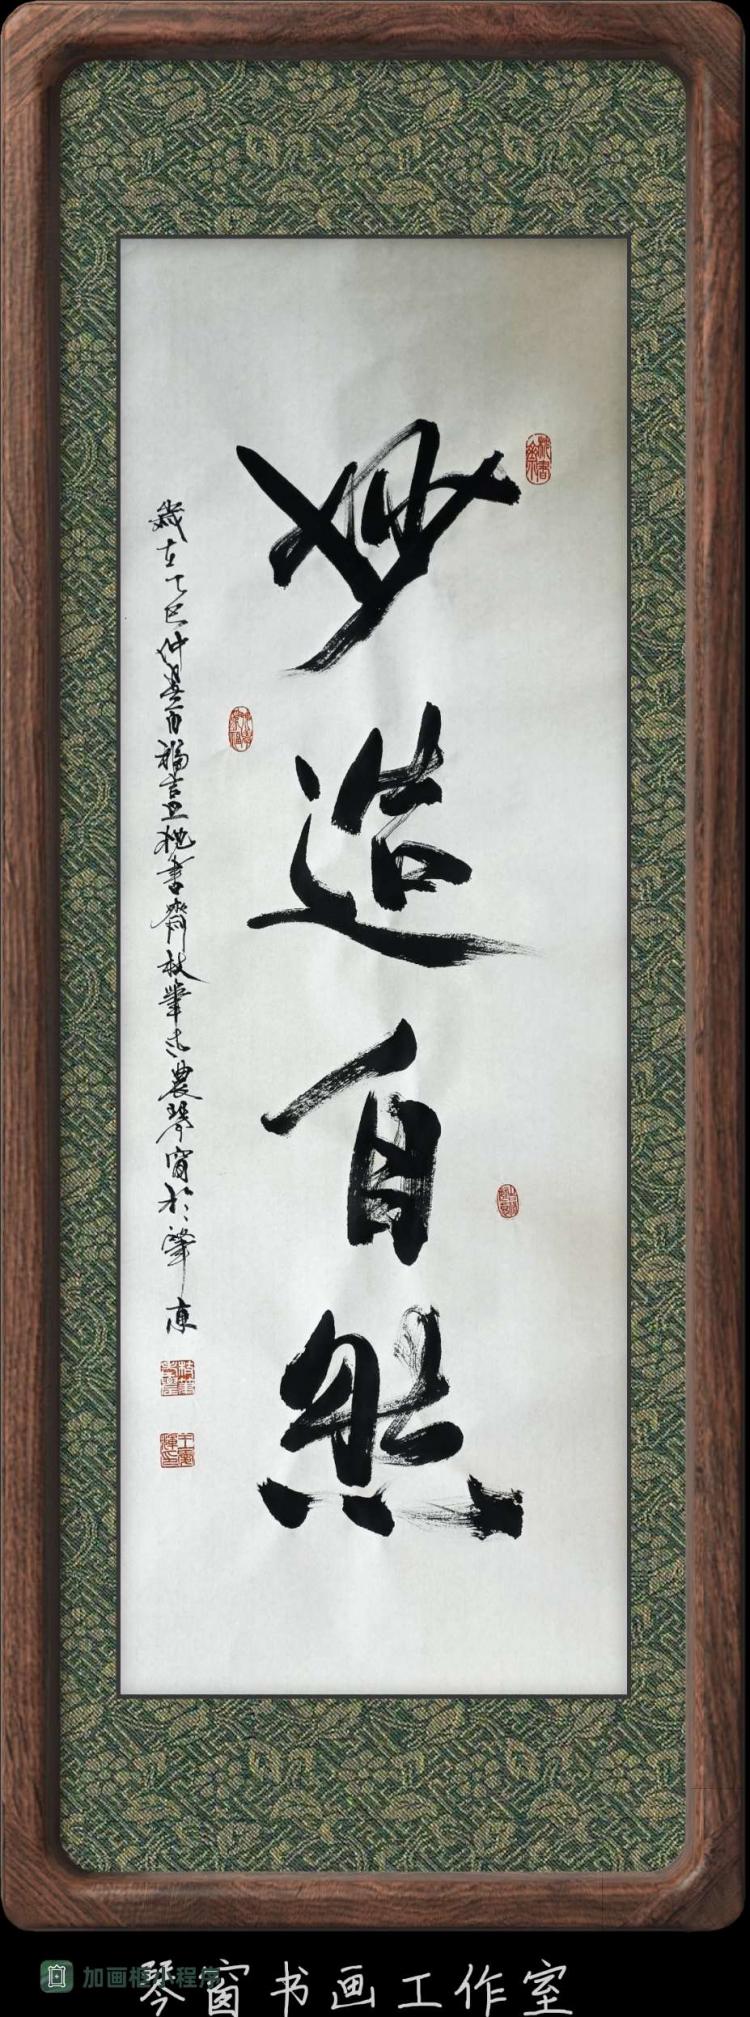 妙造自然
歲在乙巳仲夏百福吉旦挑書齋秋華士農琴窗於肇東
加画框小程序
琴窗书画工作室